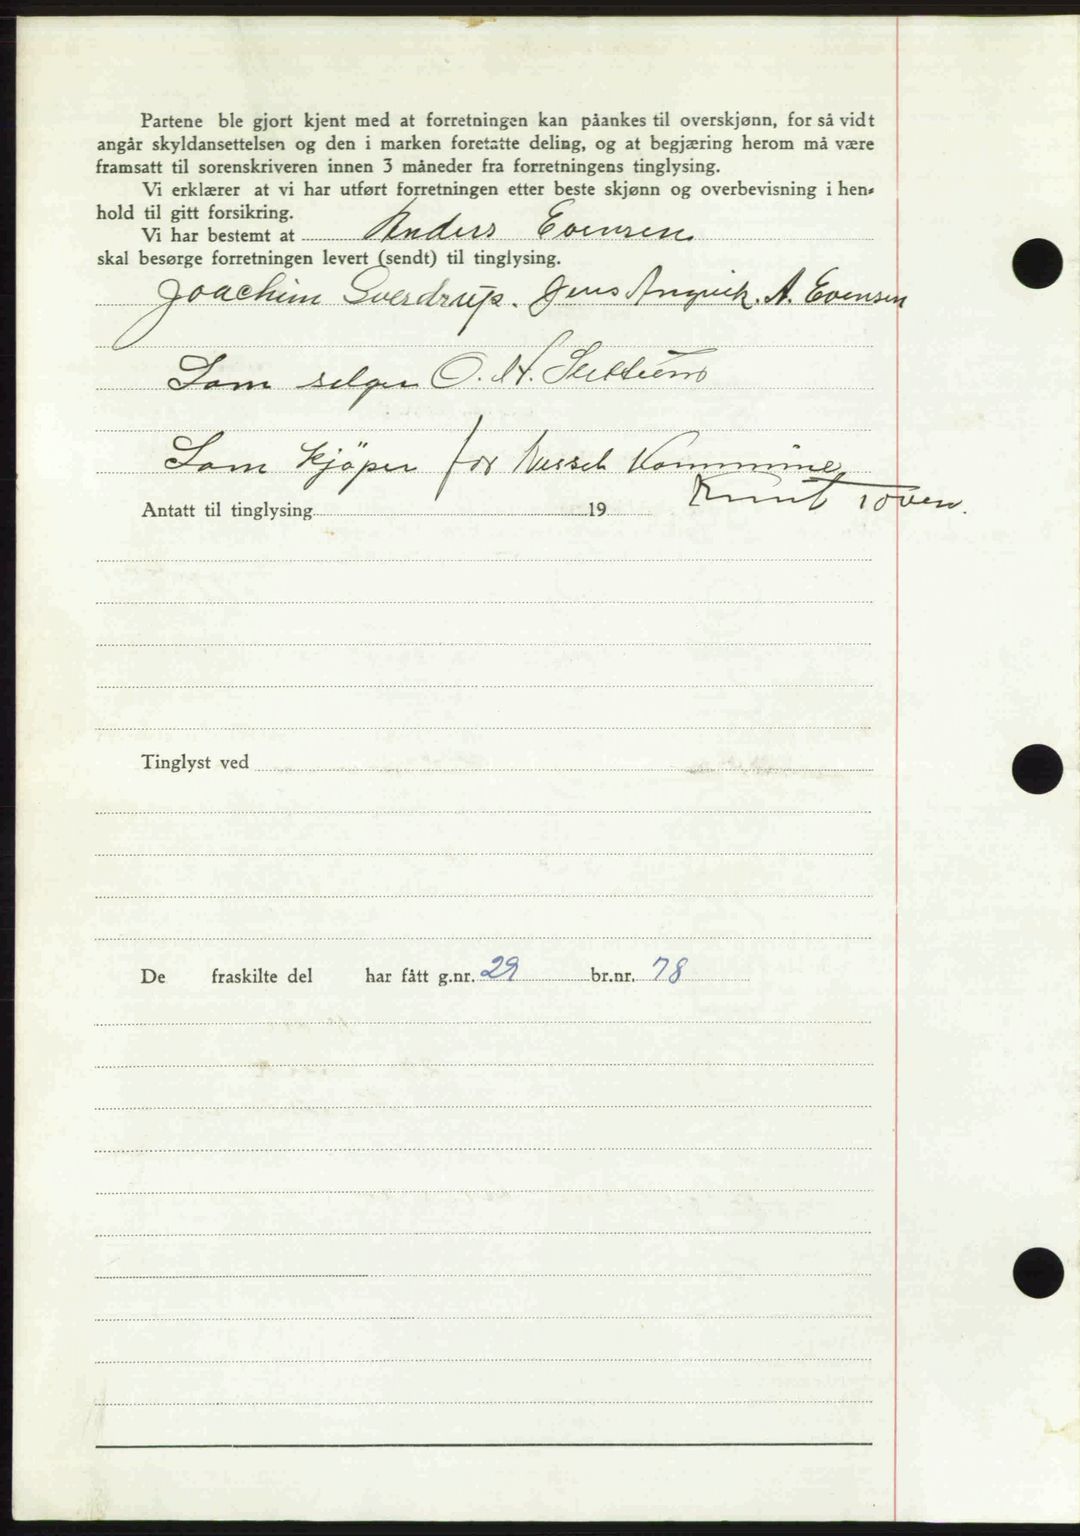 Partene ble gjort kjent med at forretningen kan påankes til overskjønn, for så vidt
angår skyldansettelsen og den i marken foretatte deling, og at begjæring herom må være
framsatt til sorenskriveren innen 3 måneder fra forretningens tinglysing.
Vi erklærer at vi har utført forretningen etter beste skjønn og overbevisning i hen-
hold til gitt forsikring.
Vi har bestemt at Anders Evensen
skal besørge forretningen levert (sendt) til tinglysing.
Joachim Sverdrup. Jens Angvik. A. Evensen
Som selger O. H.
Som kjöper for Nesset Kommune
Knut Toven.
Antatt til tinglysing 19
Tinglyst ved
De fraskilte del har fått g.nr. 29 br.nr. 78